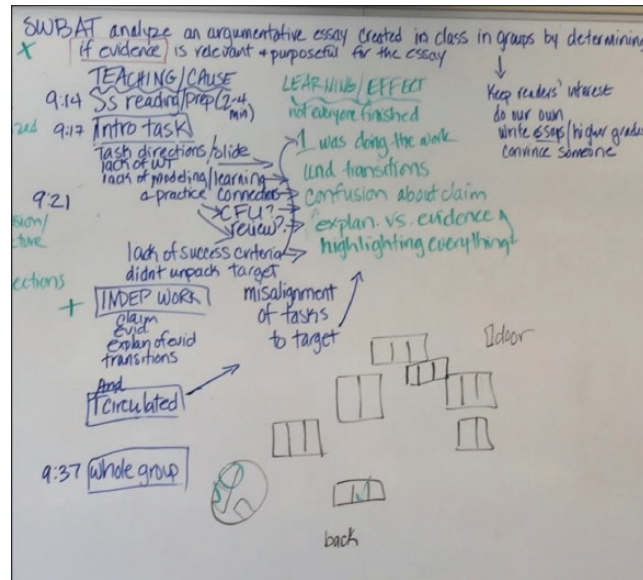 SWBAT analyze an argumentative essay created in class in groups by determining
if evidence is relevant + purposeful for the essay
x
TEACHING/CAUSE
9:14 Ss reading/prep (2-4 min)
9:17 Intro task
Task directions/slide
lack of WT
lack of modeling/learning
a practice connectors
9:21
CFU?
review?
lack of success criteria
didnt unpack target
ections
+
INDEP WORK
claim
evid
explan of evid
transitions
And
T circulated
9:37 whole group
LEARNING/EFFECT
not everyone finished
1 was doing the work
und transitions
confusion about claim
explan. vs. evidence
highlighting everything
misalignment
of tasks
to target
Keep readers' interest
do our own
write essays/higher grades
convince someone
door
back